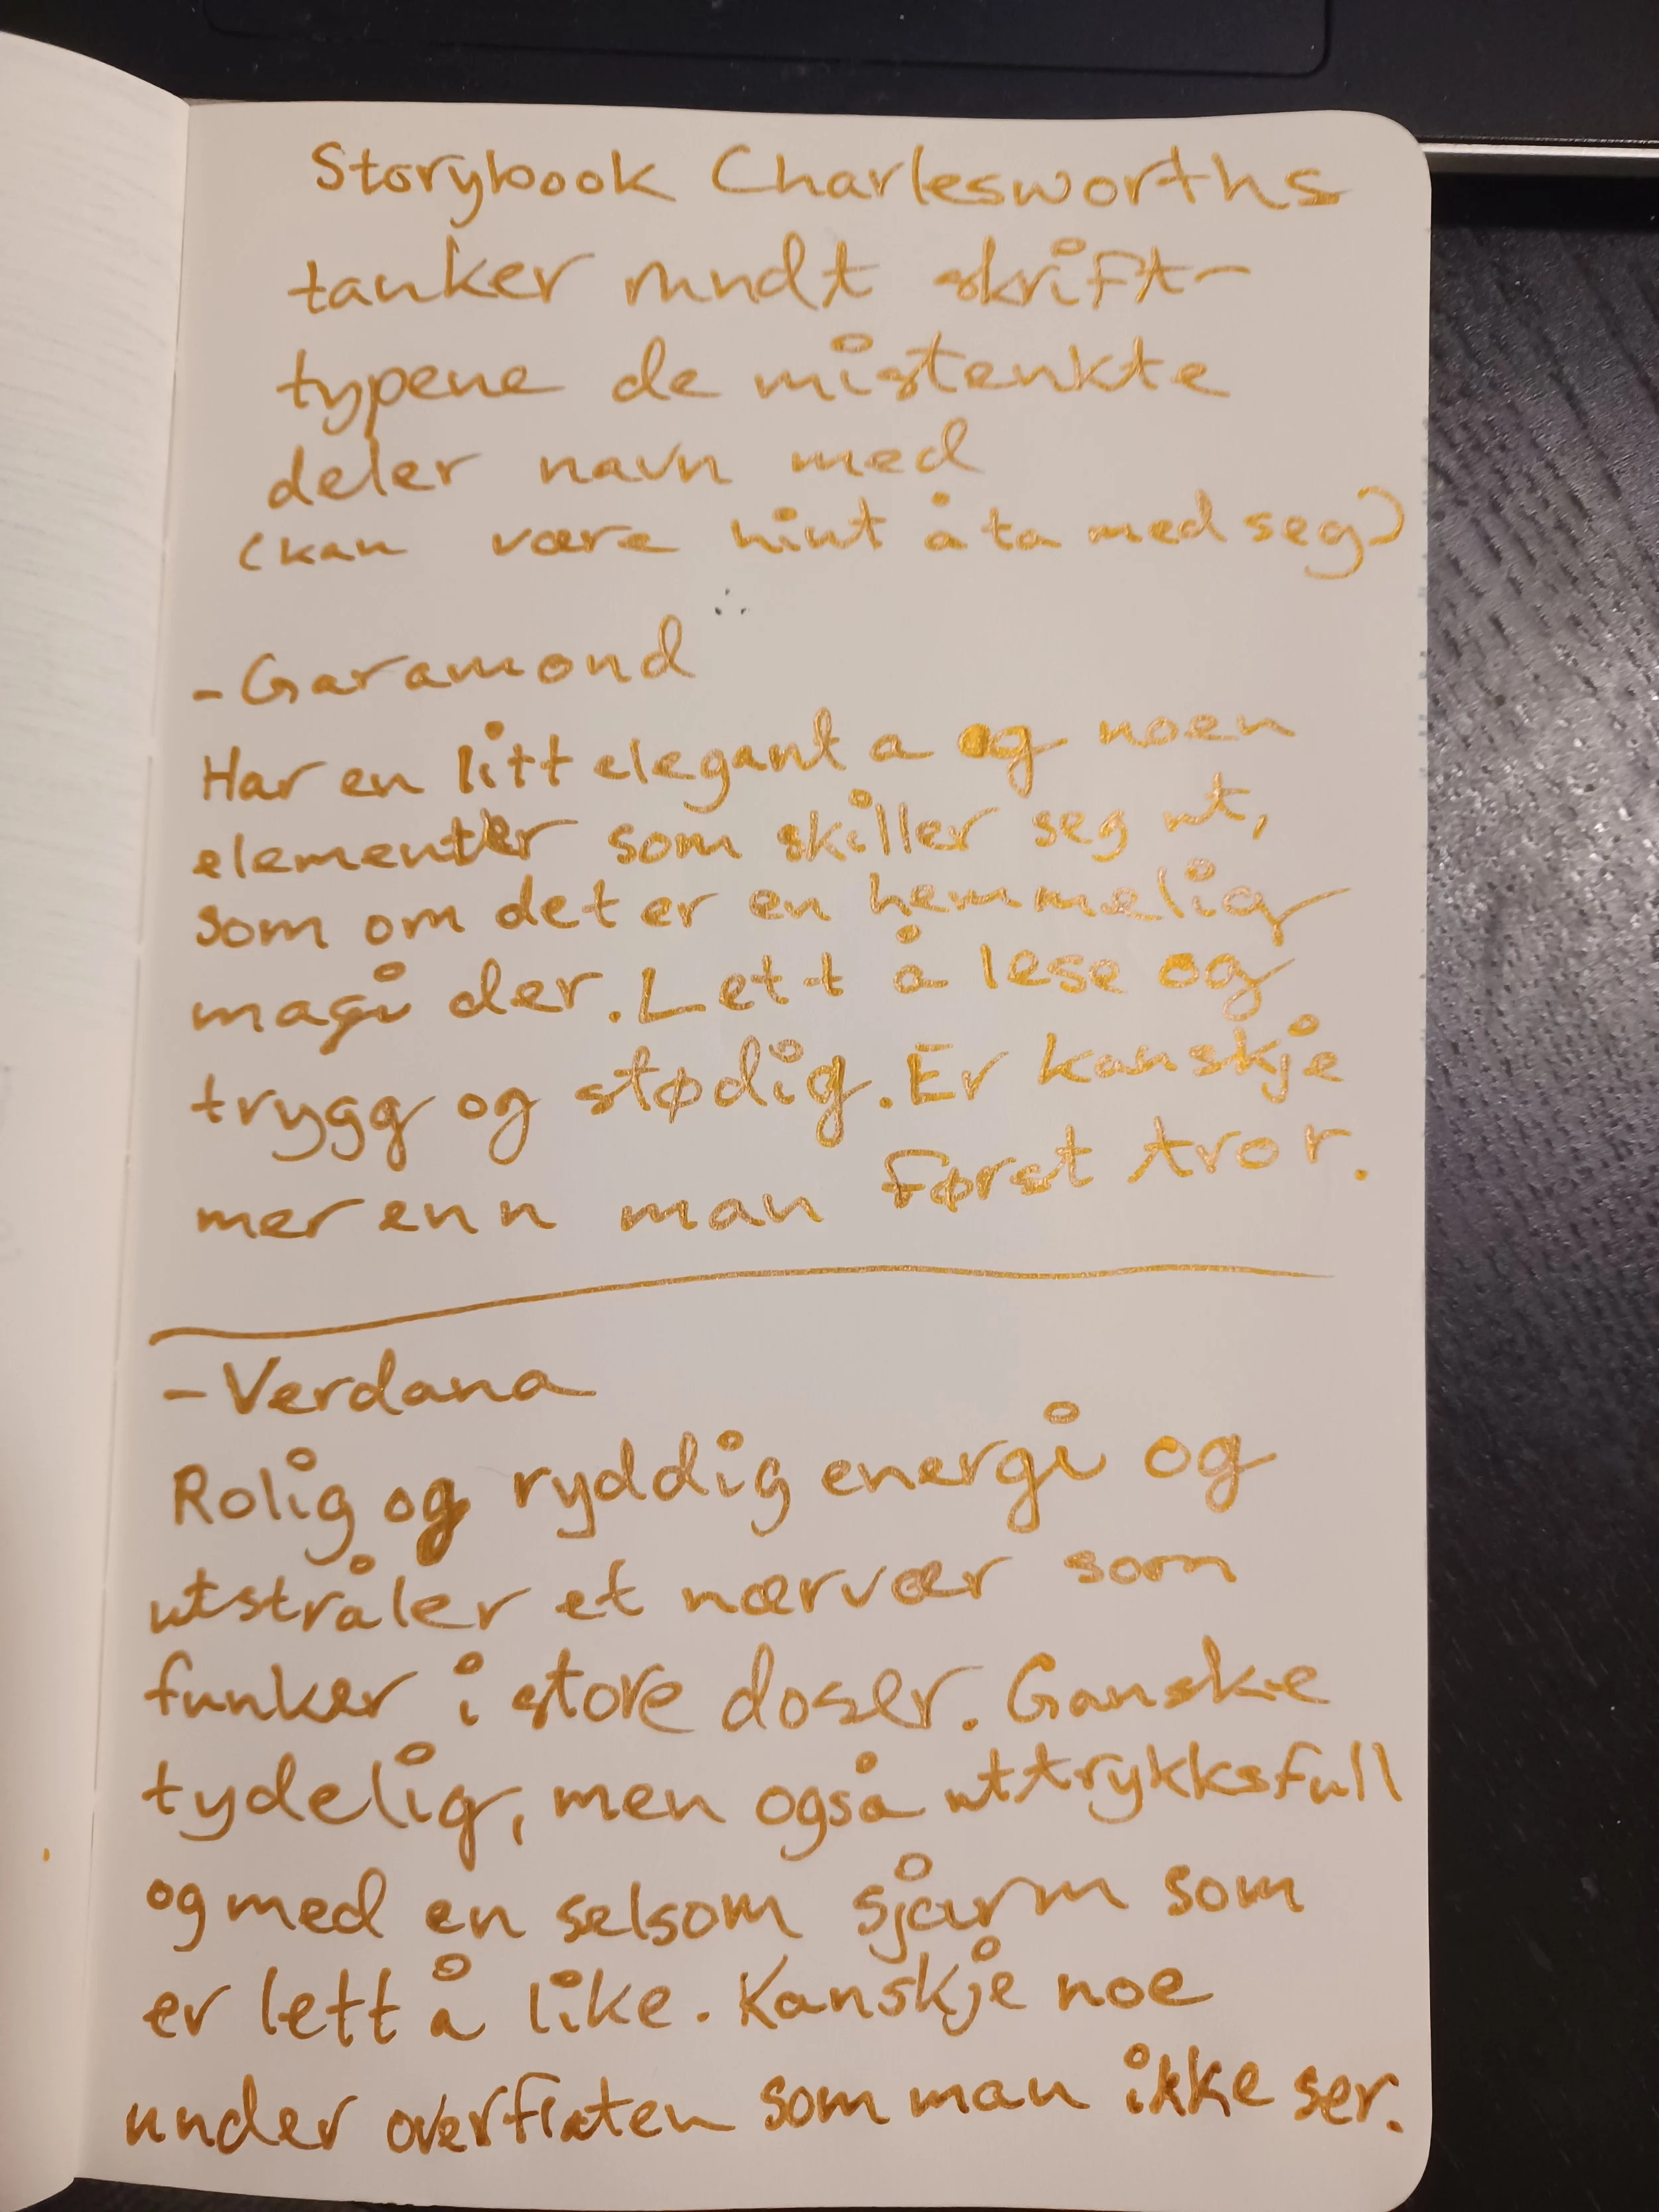 Storybook Charlesworths
tanker rundt skrift-
typene de mistenkte
deler navn med
(kan være hint å ta med seg)
- Garamond
Har en litt elegant a og noen
elementer som skiller seg ut,
som om det er en hemmelig
magi der. Lett å lese og
trygg og stødig. Er kanskje
mer enn man først tror.
- Verdana
Rolig og ryddig energi og
utstråler et nærvær som
funker i store doser. Ganske
tydelig, men også uttrykksfull
og med en selsom sjarm som
er lett å like. Kanskje noe
under overflaten som man ikke ser.